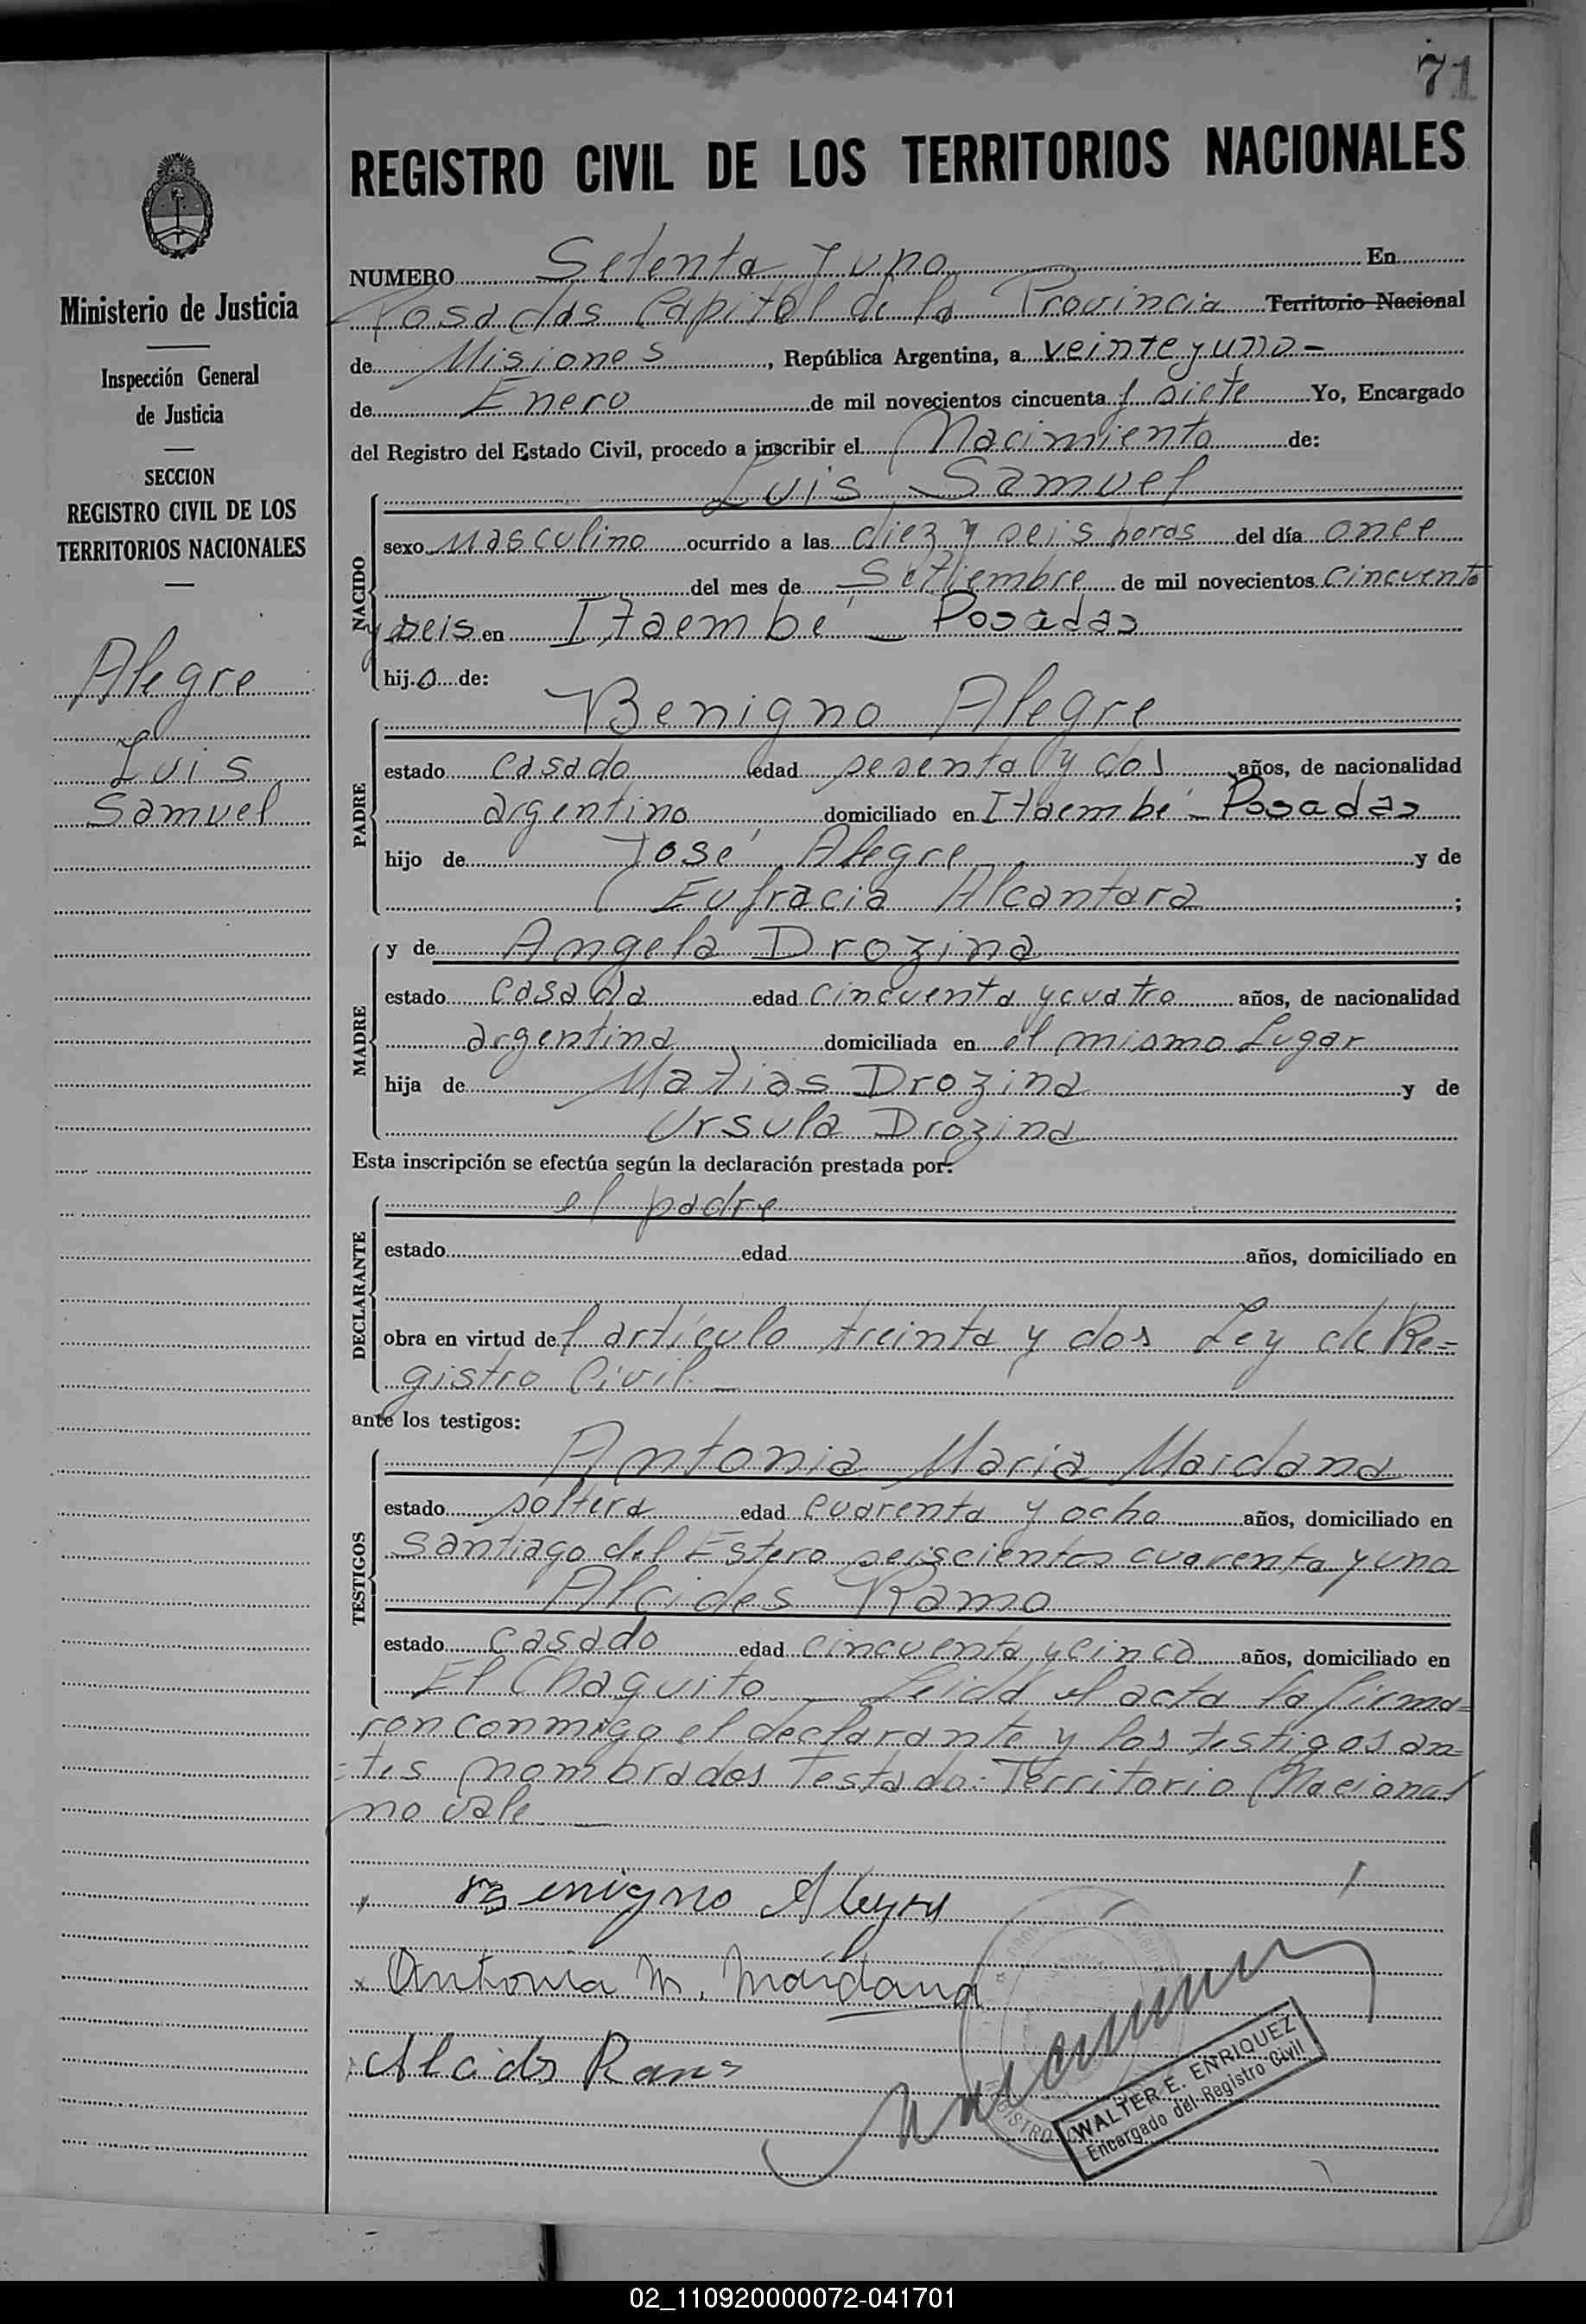 71
REGISTRO CIVIL DE LOS TERRITORIOS NACIONALES
Ministerio de Justicia
Inspección General
de Justicia
SECCION
REGISTRO CIVIL DE LOS
TERRITORIOS NACIONALES
Alegre
Luis
Samuel
NUMERO Setenta y uno En
Posadas Capital de la Provincia Territorio Nacional
de Misiones, República Argentina, a veinte y uno -
de Enero de mil novecientos cincuenta y siete Yo, Encargado
del Registro del Estado Civil, procedo a inscribir el Nacimiento de:
NACIDO
Luis Samuel
sexo Masculino ocurrido a las diez y seis horas del día once
del mes de Setiembre de mil novecientos cincuenta
y seis en Itaembé - Posadas
hijo de:
PADRE
Benigno Alegre
estado casado edad sesenta y dos años, de nacionalidad
argentino domiciliado en Itaembé - Posadas
hijo de José Alegre y de
Eufracia Alcantara;
MADRE
y de Angela Drozina
estado casada edad cincuenta y cuatro años, de nacionalidad
argentina domiciliada en el mismo Lugar
hija de Matias Drozina y de
Ursula Drozina
Esta inscripción se efectúa según la declaración prestada por:
DECLARANTE
el padre
estado edad años, domiciliado en
obra en virtud del artículo treinta y dos Ley de Re=
gistro Civil. -
ante los testigos:
TESTIGOS
Antonia Maria Maidana
estado soltera edad cuarenta y ocho años, domiciliado en
Santiago del Estero seiscientos cuarenta y uno
Alcides Ramo
estado casado edad cincuenta y cinco años, domiciliado en
El Chaquito - Leida el acta la firma=
ron conmigo el declarante y los testigos an=
=tes nombrados Testado: Territorio Nacional
no vale -
Benigno Alegre
Antonia M. Maidana
Alcides Ramo
WALTER E. ENRIQUEZ
Encargado del Registro Civil
02_110920000072-041701